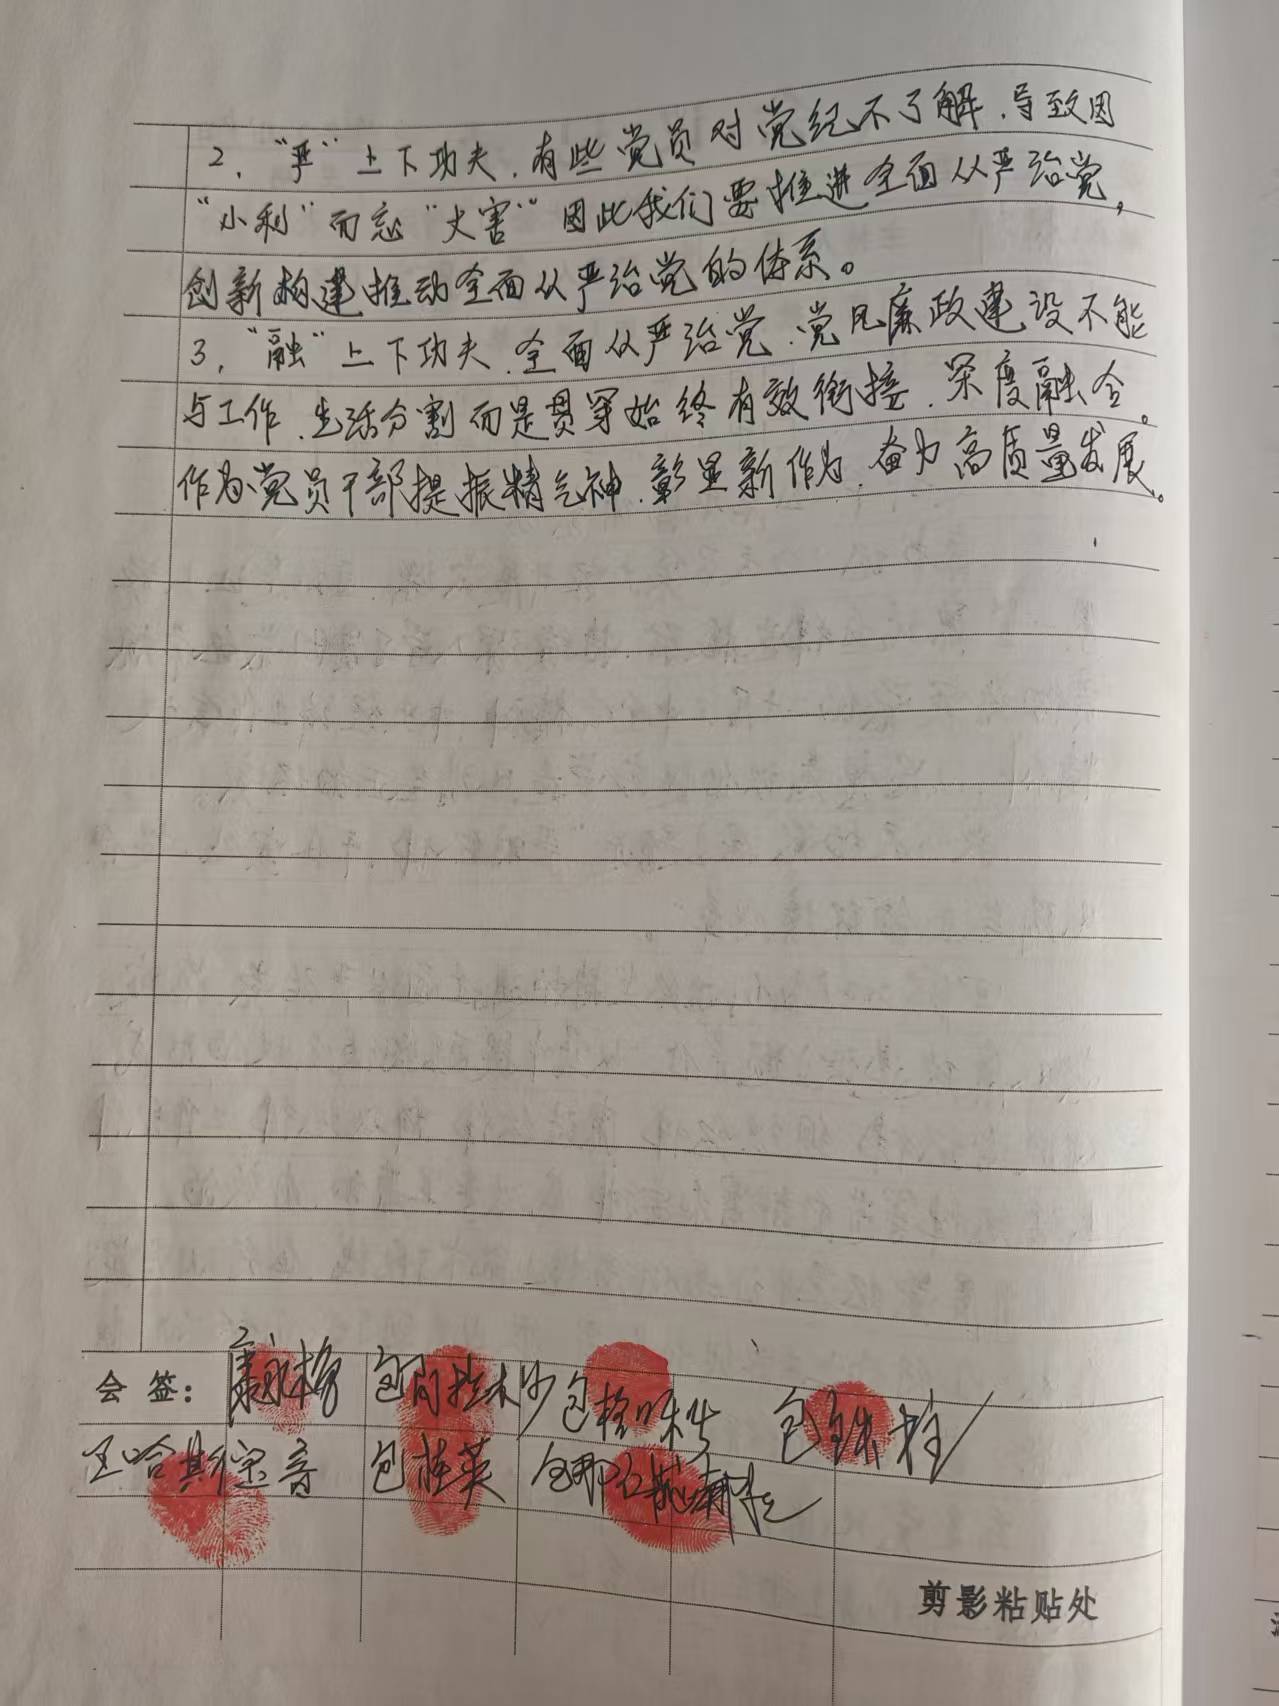 2、“严”上下功夫、有些党员对党纪不了解、导致因
“小利”而忘“大害”因此我们要推进全面从严治党,
创新构建推动全面从严治党的体系。
3、“融”上下功夫、全面从严治党、党风廉政建设不能
与工作、生活分割而是贯穿始终有效衔接、深度融合。
作为党员干部提振精气神、彰显新作为、奋力高质量发展。
会 签:
包桂英
包铁柱
剪影粘贴处